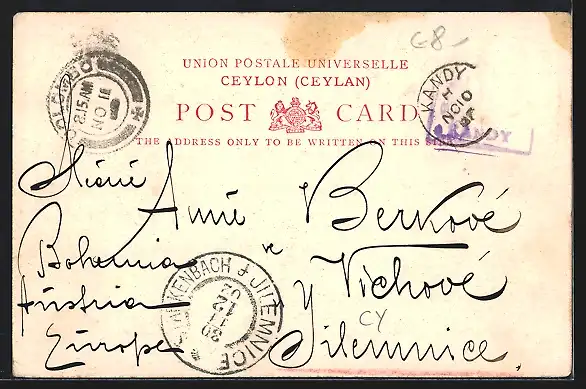 G8-
UNION POSTALE UNIVERSELLE
CEYLON (CEYLAN)
POST CARD
THE ADDRESS ONLY TO BE WRITTEN ON THIS SIDE
COLOMBO
8.15AM
NO 11
KANDY
H
NO 10
KANDY
Anně Berkové
ve Vichové
y Jilemnice
Bohemia
Austria
Europe
STARKENBACH JILEMNICE
CY